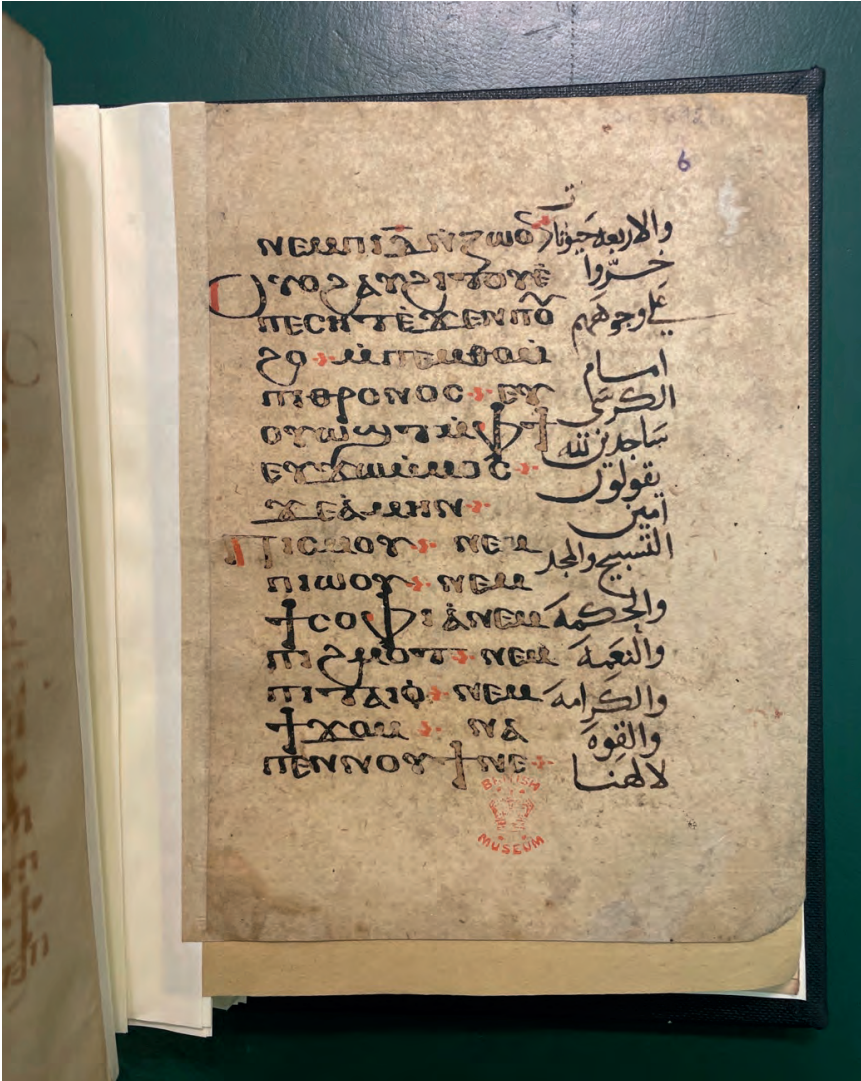 6
ⲛⲉⲙⲡⲓⲇ̅ⲛ̀ⲍⲱⲟⲛ
ⲟⲩⲟϩⲁⲩϩⲓⲧⲟⲩⲉ̀
ⲡⲉⲥⲏⲧⲉ̀ϫⲉⲛⲡⲟⲩ
ϩⲟ ⲙ̀ⲡⲉⲙⲑⲟⲙ̀
ⲡⲓⲑⲣⲟⲛⲟⲥ ⲉⲩ
ⲟⲩⲱϣⲧⲙ̀ⲫϯ
ⲉⲩϫⲱⲙ̀ⲙⲟⲥ
ϫⲉⲁ̀ⲙⲏⲛ
ⲡⲓⲥⲙⲟⲩ ⲛⲉⲙ
ⲡⲓⲱⲟⲩ ⲛⲉⲙ
ϯⲥⲟⲫⲓⲁ̀ⲛⲉⲙ
ⲡⲓϩⲙⲟⲧ ⲛⲉⲙ
ⲡⲓⲧⲁⲓⲟ̀ ⲛⲉⲙ
ϯϫⲟⲙ ⲛⲁ
ⲡⲉⲛⲛⲟⲩϯⲛⲉ
والاربعه حيونات
خرّوا
على وجوههم
امام
الكرسى
ساجدين لله
يقولون
امين
التسبيح والمجد
والحكمه
والنعمه
والكرامه
والقوه
لالهنا
BRITISH
MUSEUM